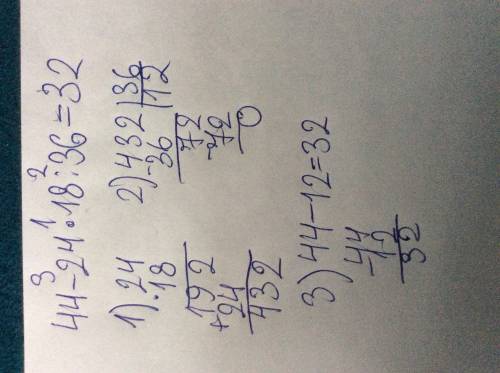 44-24·18:36=32
3 1 2
1) 24
·18
192
+24
432
2) 432|36
-36 |12
72
-72
0
3) 44-12=32
44
-12
32